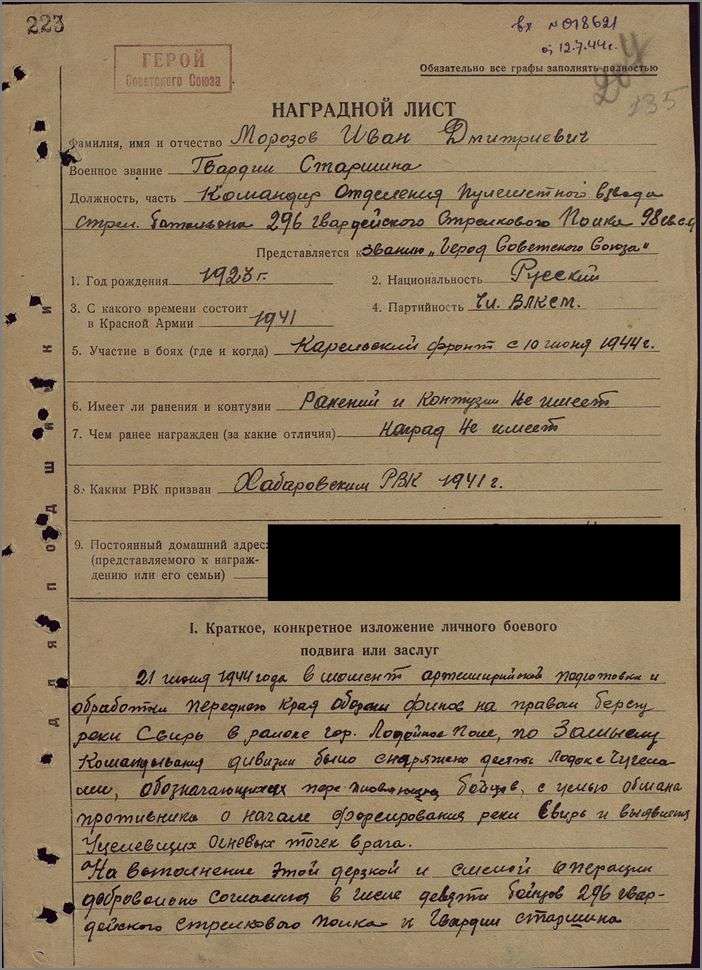 223
вх №018621
от 12.7.44г.
ГЕРОЙ
Советского Союза
Обязательно все графы заполнять полностью
204
135
НАГРАДНОЙ ЛИСТ
Фамилия, имя и отчество Морозов Иван Дмитриевич
Военное звание Гвардии Старшина
Должность, часть Командир Отделения пулеметного взвода
стрел. батальона 296 гвардейского Стрелкового Полка 98гв.с.д
Представляется к званию „Герой Советского Союза"
1. Год рождения 1923г. 2. Национальность Русский
3. С какого времени состоит 4. Партийность Чл. ВЛКСМ.
в Красной Армии 1941
5. Участие в боях (где и когда) Карельский фронт с 10 июня 1944г.
6. Имеет ли ранения и контузии Ранений и Контузии Не имеет
7. Чем ранее награжден (за какие отличия) Наград Не имеет
8. Каким РВК призван Хабаровским РВК 1941г.
9. Постоянный домашний адрес:
(представляемого к награж-
дению или его семьи)
Для подшивки
I. Краткое, конкретное изложение личного боевого
подвига или заслуг
21 июня 1944 года в момент артиллерийской подготовки и
обработки переднего края обороны финов на правом берегу
реки Свирь в районе гор. Лодейное Поле, по Замыслу
Командования дивизии было снаряжено десять Лодок с Чучела-
ми, обозначающих переправляющихся бойцов, с целью обмана
противника о начале форсирования реки Свирь и выявления
Уцелевших Огневых точек врага.
На выполнение этой дерзкой и смелой операции
добровольно согласился в числе девяти бойцов 296 гвар-
дейского стрелкового полка и Гвардии старшина